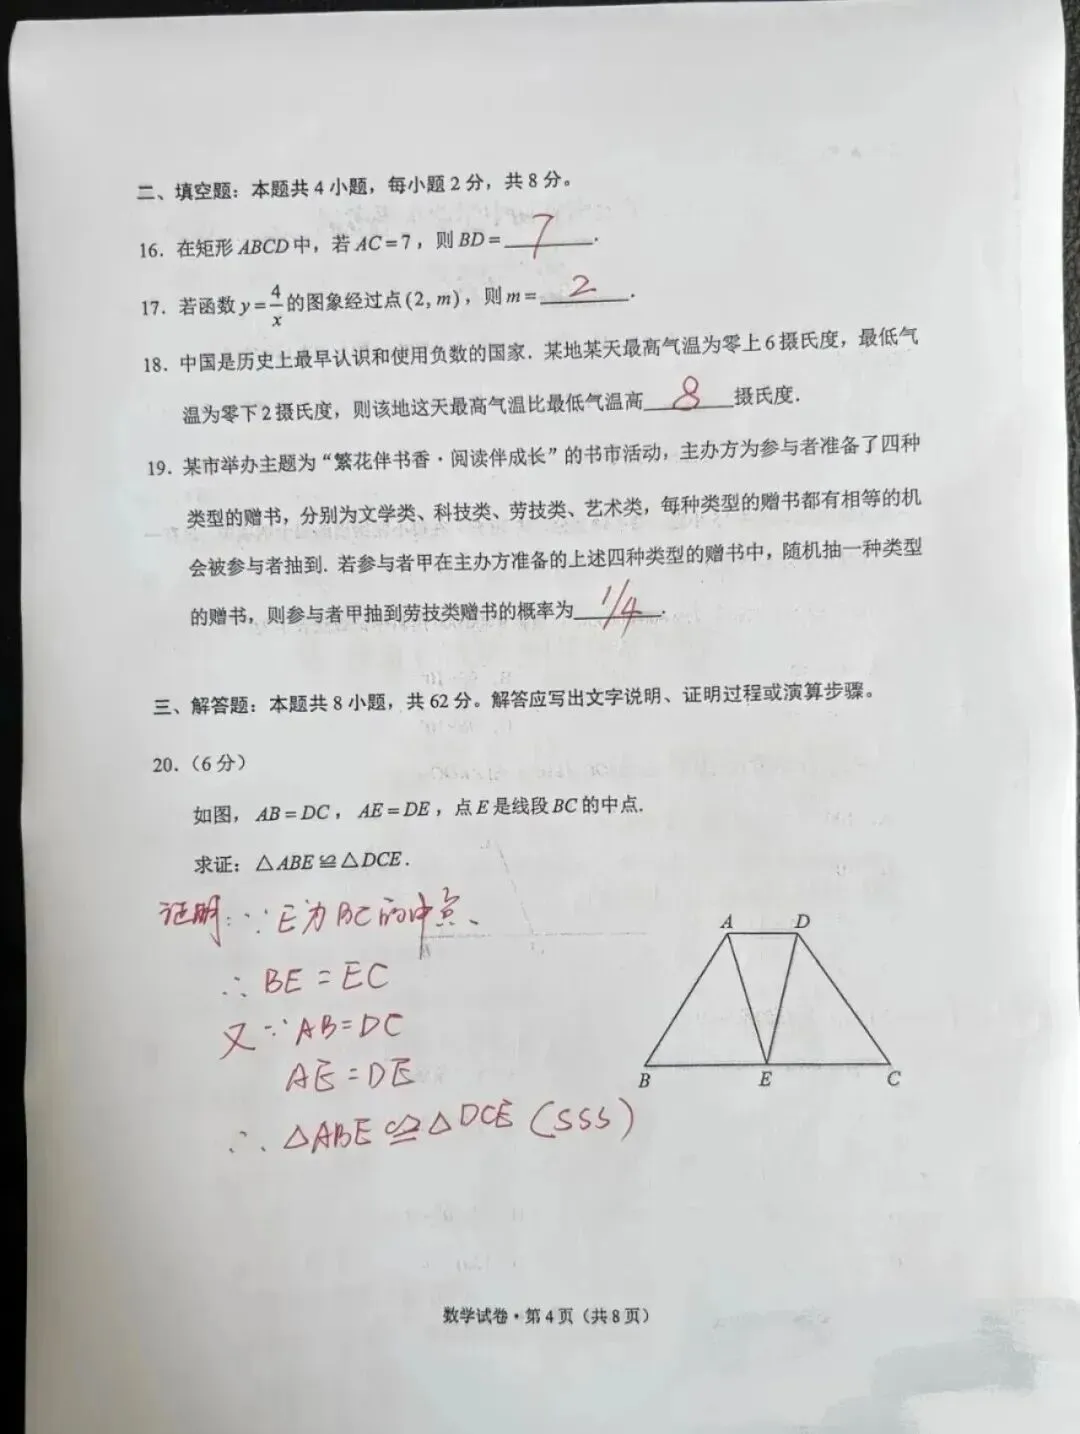 二、填空题：本题共4小题，每小题2分，共8分。
16. 在矩形ABCD中，若AC=7，则BD=7.
17. 若函数y=4/x的图象经过点(2, m)，则m=2.
18. 中国是历史上最早认识和使用负数的国家. 某地某天最高气温为零上6摄氏度，最低气
温为零下2摄氏度，则该地这天最高气温比最低气温高8摄氏度.
19. 某市举办主题为“繁花伴书香·阅读伴成长”的书市活动，主办方为参与者准备了四种
类型的赠书，分别为文学类、科技类、劳技类、艺术类，每种类型的赠书都有相等的机
会被参与者抽到. 若参与者甲在主办方准备的上述四种类型的赠书中，随机抽一种类型
的赠书，则参与者甲抽到劳技类赠书的概率为1/4.
三、解答题：本题共8小题，共62分。解答应写出文字说明、证明过程或演算步骤。
20.（6分）
如图，AB=DC，AE=DE，点E是线段BC的中点.
求证：△ABE≌△DCE.
证明：∵E为BC的中点、
∴BE=EC
又∵AB=DC
AE=DE
∴△ABE≌△DCE（SSS）
A D
B E C
数学试卷·第4页（共8页）